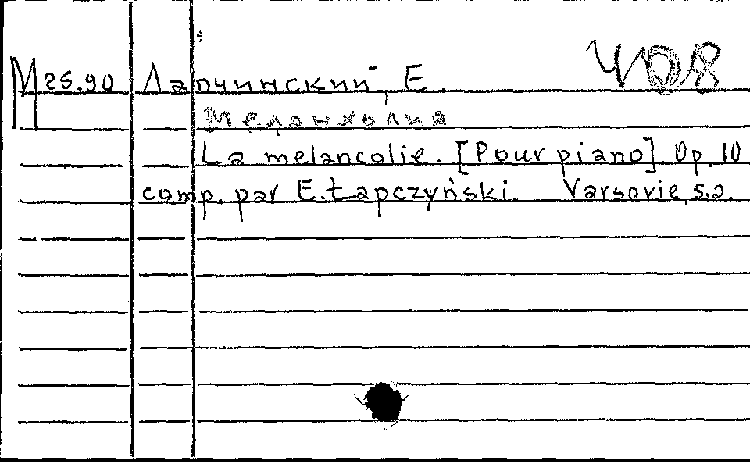 M 25.90 Лапчинский, Е. 408
Меланхолия
La melancolie. [Pour piano] Op. 10
comp. par E. Łapczyński. Varsovie, s.a.